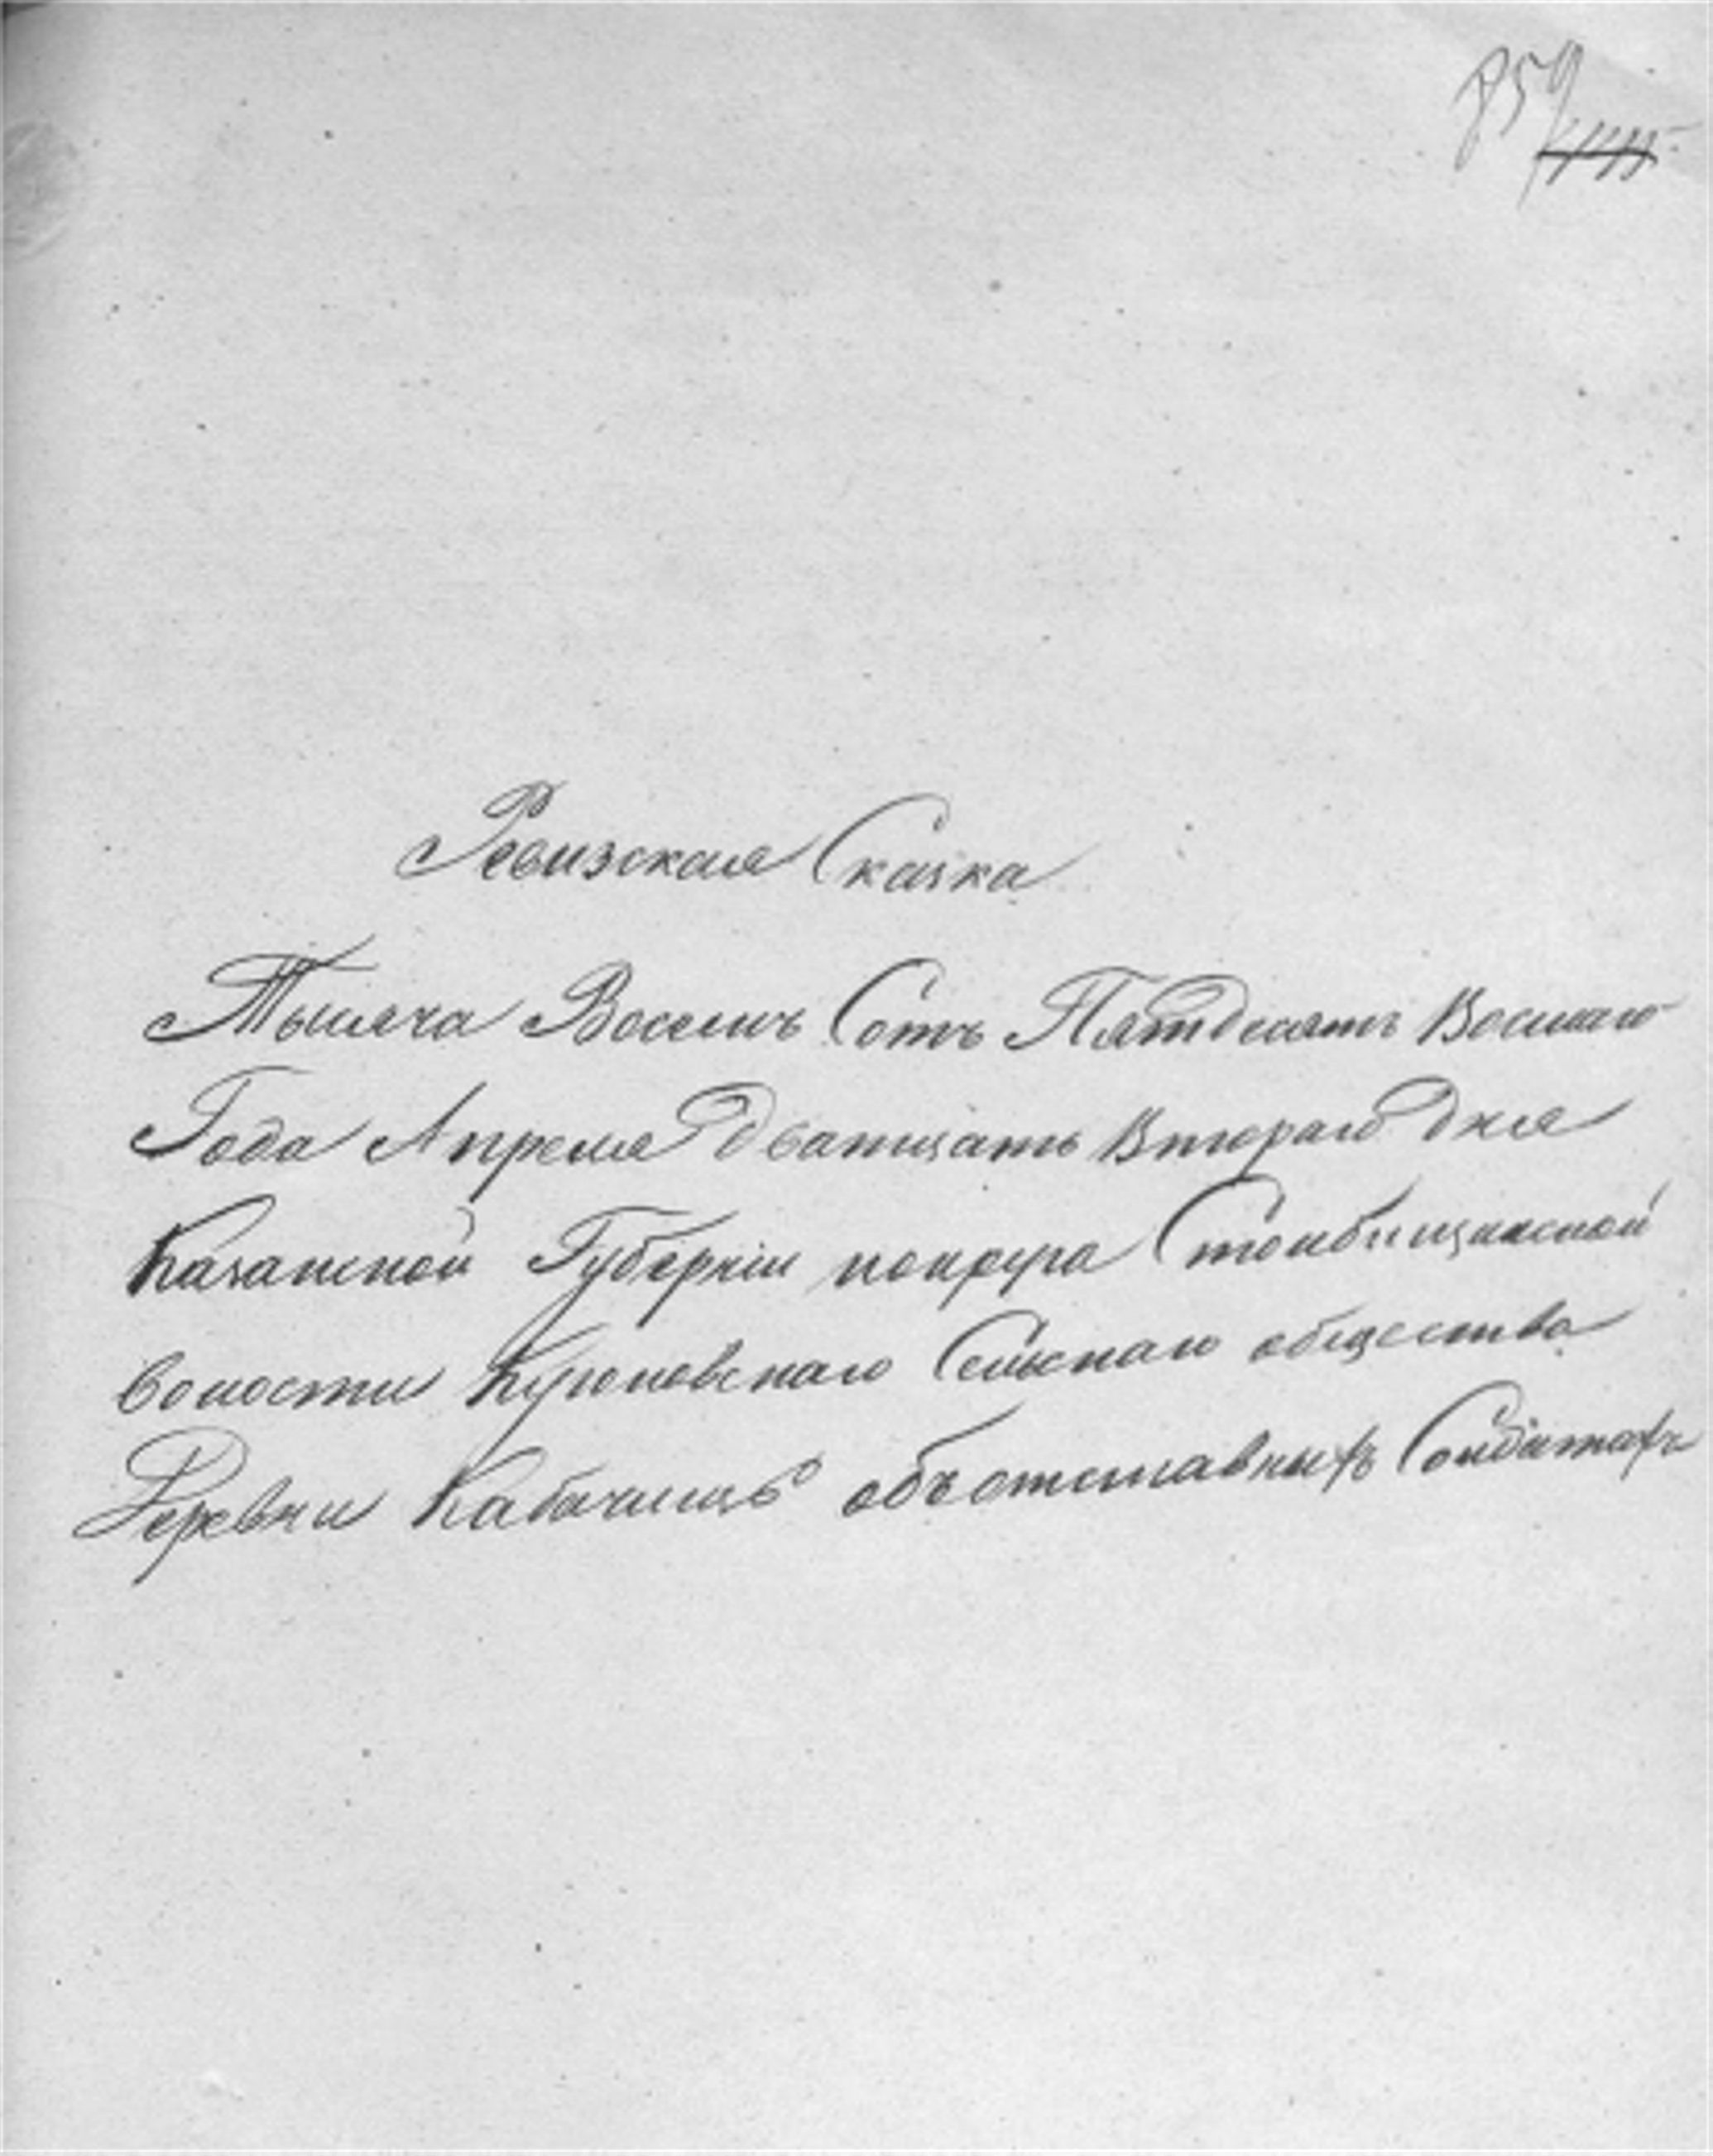 859
Ревизская Сказка
Тысяча Восемь Сотъ Пятдесятъ Восмаго
Года Апреля дватцать Втораго дня
Казанской Губернiи Столбищинской
Волости Кулювскаго Сельскаго общества
Деревни Кабачищъ объ отставныхъ Солдатахъ